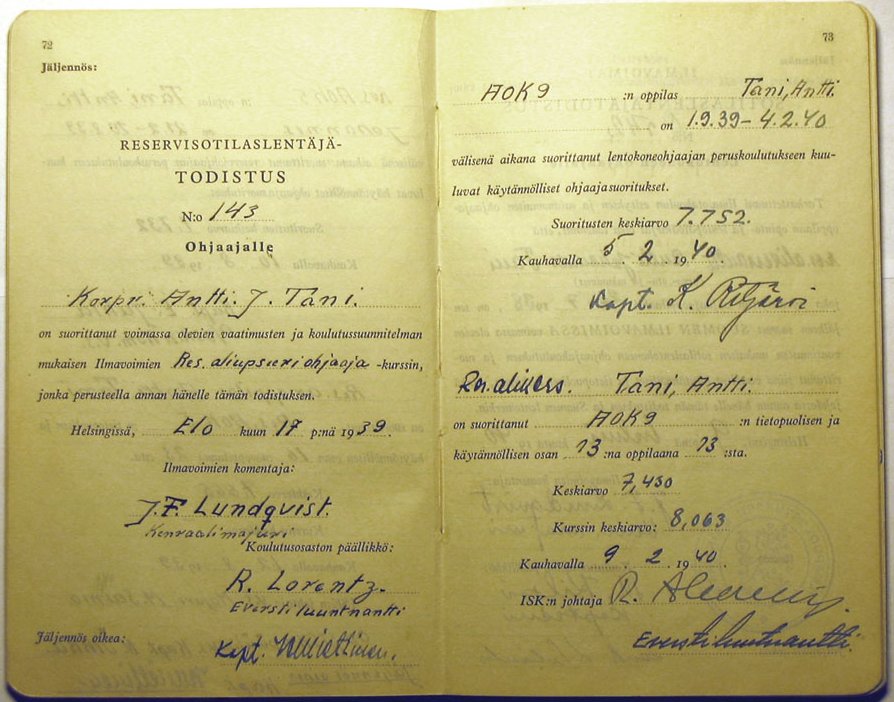 72
Jäljennös:
RESERVISOTILASLENTÄJÄ-
TODISTUS
N:o 143
Ohjaajalle
Korpr. Antti. J. Tani.
on suorittanut voimassa olevien vaatimusten ja koulutussuunnitelman
mukaisen Ilmavoimien Res. aliupseeriohjaaja -kurssin,
jonka perusteella annan hänelle tämän todistuksen.
Helsingissä, Elo kuun 17 p:nä 1939.
Ilmavoimien komentaja:
J.F. Lundqvist.
Kenraalimajuri
Koulutusosaston päällikkö:
R. Lorentz.
Everstiluutnantti
Jäljennös oikea: Kapt.
73
AOK9 :n oppilas Tani, Antti.
on 1.9.39–4.2.40
välisenä aikana suorittanut lentokoneohjaajan peruskoulutukseen kuu-
luvat käytännölliset ohjaajasuoritukset.
Suoritusten keskiarvo 7.752.
Kauhavalla 5. 2. 1940.
Kapt. K.
Res. Tani, Antti.
on suorittanut AOK9 :n tietopuolisen ja
käytännöllisen osan 13 :na oppilaana 13 :sta.
Keskiarvo 7,430
Kurssin keskiarvo: 8,063
Kauhavalla 9. 2. 1940.
ISK:n johtaja R.
Everstiluutnantti.